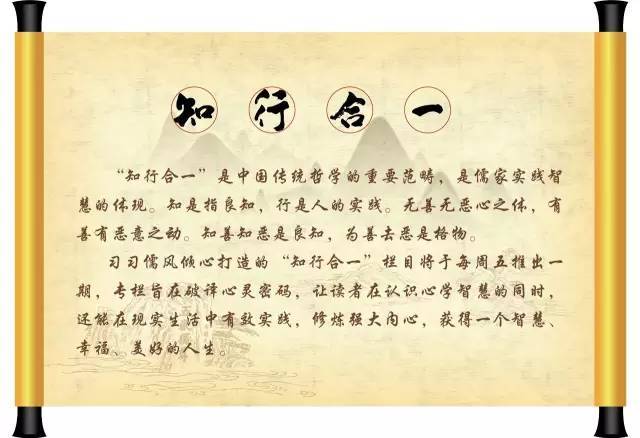 知行合一
“知行合一”是中国传统哲学的重要范畴，是儒家实践智
慧的体现。知是指良知，行是人的实践。无善无恶心之体，有
善有恶意之动。知善知恶是良知，为善去恶是格物。
习习儒风倾心打造的“知行合一”栏目将于每周五推出一
期，专栏旨在破译心灵密码，让读者在认识心学智慧的同时，
还能在现实生活中有效实践，修炼强大内心，获得一个智慧、
幸福、美好的人生。